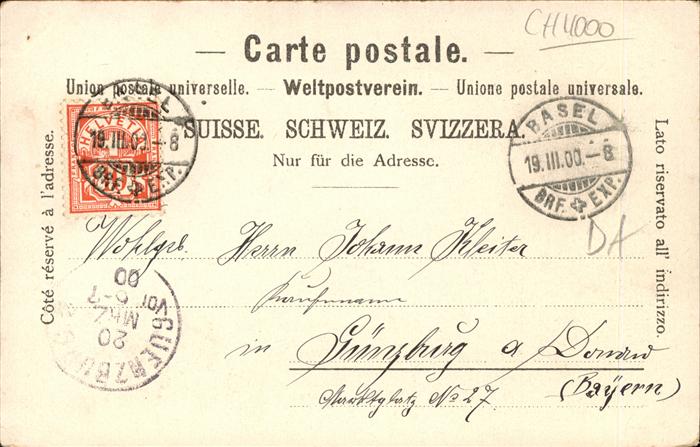 CH4000
— Carte postale. —
Union postale universelle. — Weltpostverein. — Unione postale universale.
SUISSE. SCHWEIZ. SVIZZERA.
Nur für die Adresse.
Côté réservé à l'adresse.
Lato riservato all' indirizzo.
HELVETIA
BASEL
19.III.00.–8
BRF. EXP.
BASEL
19.III.00.–8
BRF. EXP.
DA
Wohlgeb. Herrn Johann Kleiter
Kaufmann
in Günzburg a Donau
(Bayern)
Marktplatz No 27
GUENZBURG
20
MRZ
00